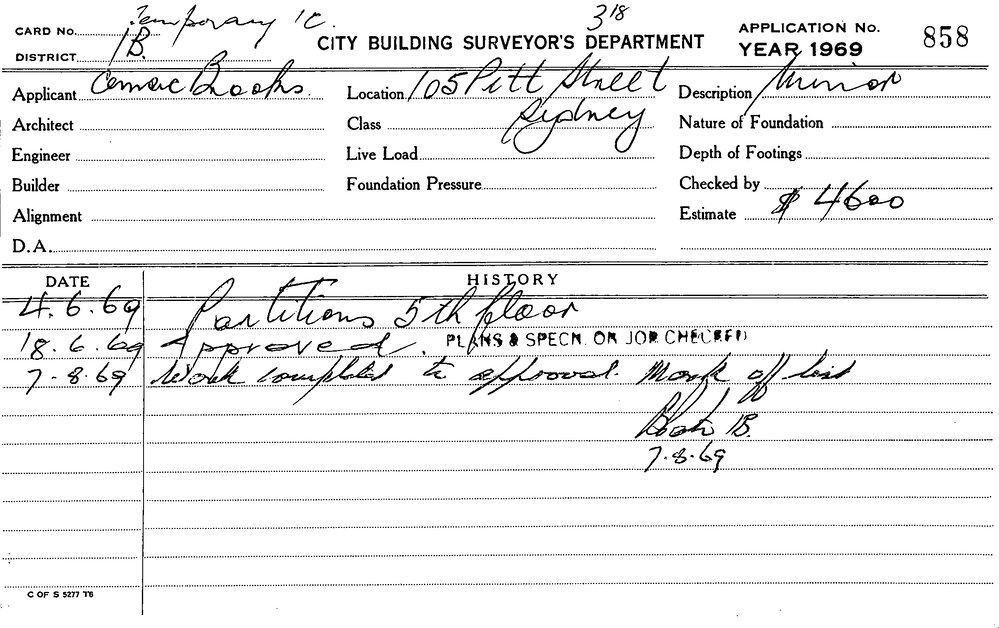 Temporary 'C.
CARD No.
1B.
DISTRICT
318
CITY BUILDING SURVEYOR'S DEPARTMENT
APPLICATION No.
YEAR 1969
858
Applicant Cemac Brooks. Location 105 Pitt Street Description Minor
Architect Class Sydney Nature of Foundation
Engineer Live Load Depth of Footings
Builder Foundation Pressure Checked by
Alignment Estimate $ 4600
D.A.
DATE HISTORY
4.6.69 Partitions 5th floor
18.6.69 Approved. PLANS & SPECN. ON JOB CHECKED
7-8-69 Work completed to approval. Mark off list
1B.
7.8.69
C OF S 5277 T6